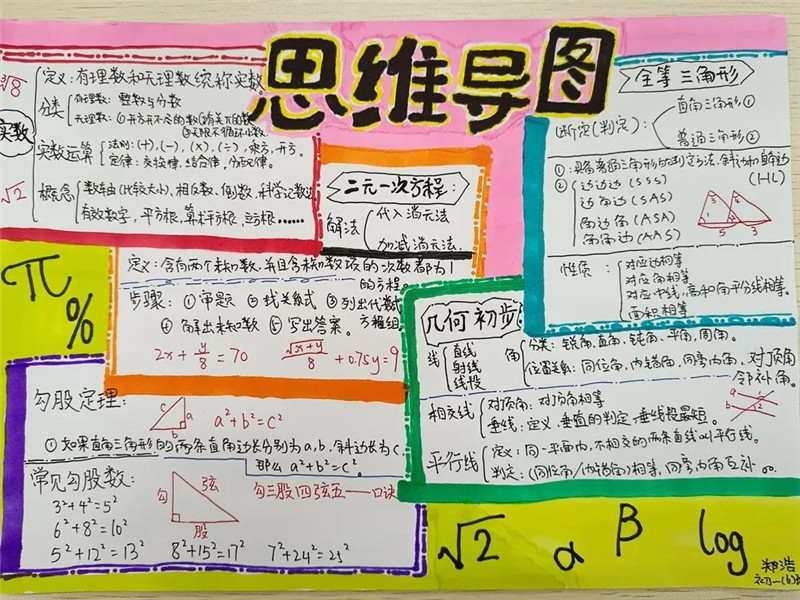 思维导图
实数
³√8
√2
定义:有理数和无理数统称实数
分类
有理数:整数与分数
无理数:①开方开不尽的数
实数运算
法则:(+),(-),(×),(÷),乘方,开方.
定律:交换律,结合律,分配律.
概念
数轴(比较大小),相反数,倒数,科学记数法
有效数字,平方根,算术平方根,立方根……
二元一次方程:
解法
代入消元法
加减消元法.
定义:含有两个未知数,并且含未知数项的次数都为1
的方程。
步骤:①审题 ②找关系式 ③列出代数式
方程组.
④解出未知数 ⑤写出答案。
2x+y/8=70
√x+y/8+0.75y=9
全等三角形
断定(判定):
直角三角形①
普通三角形②
①:具备普通三角形的判定方法,斜边和直角边
(HL)
②
边边边(SSS)
边角边(SAS)
角边角(ASA)
角角边(AAS)
5 3
性质:
对应边相等
对应角相等
对应中线,高和角平分线相等。
面积相等
几何初步:
线
直线
射线
线段
角
分类:锐角,直角,钝角,平角,周角。
位置关系:同位角,内错角,同旁内角,对顶角
邻补角。
相交线
对顶角:对顶角相等
垂线:定义,垂直的判定,垂线段最短。
a
b
1
2
平行线
定义:同一平面内,不相交的两条直线叫平行线。
判定:(同位角/内错角)相等,同旁内角互补
π
%
勾股定理:
c a
b
a²+b²=c²
①如果直角三角形的两条直角边长分别为a,b,斜边长为c,
那么a²+b²=c²。
常见勾股数:
3²+4²=5²
6²+8²=10²
5²+12²=13² 8²+15²=17² 7²+24²=25²
勾 弦
股
勾三股四弦五——口诀
√2 α β log
郑浩
初一(6)班